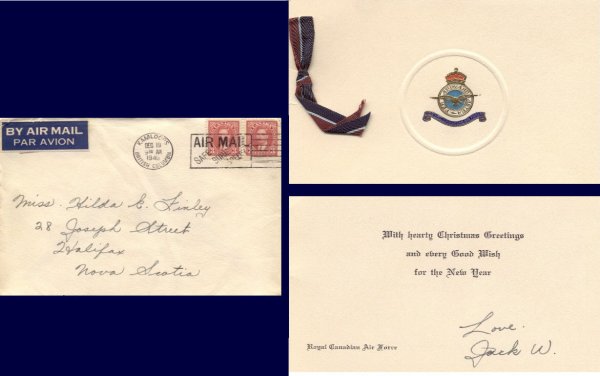 BY AIR MAIL
PAR AVION
KAMLOOPS
DEC 19
AM
BRITISH COLUMBIA
AIR MAIL
Miss. Hilda E. Finley
28 Joseph Street
Halifax
Nova Scotia
With hearty Christmas Greetings
and every Good Wish
for the New Year
Love.
Jack W.
Royal Canadian Air Force